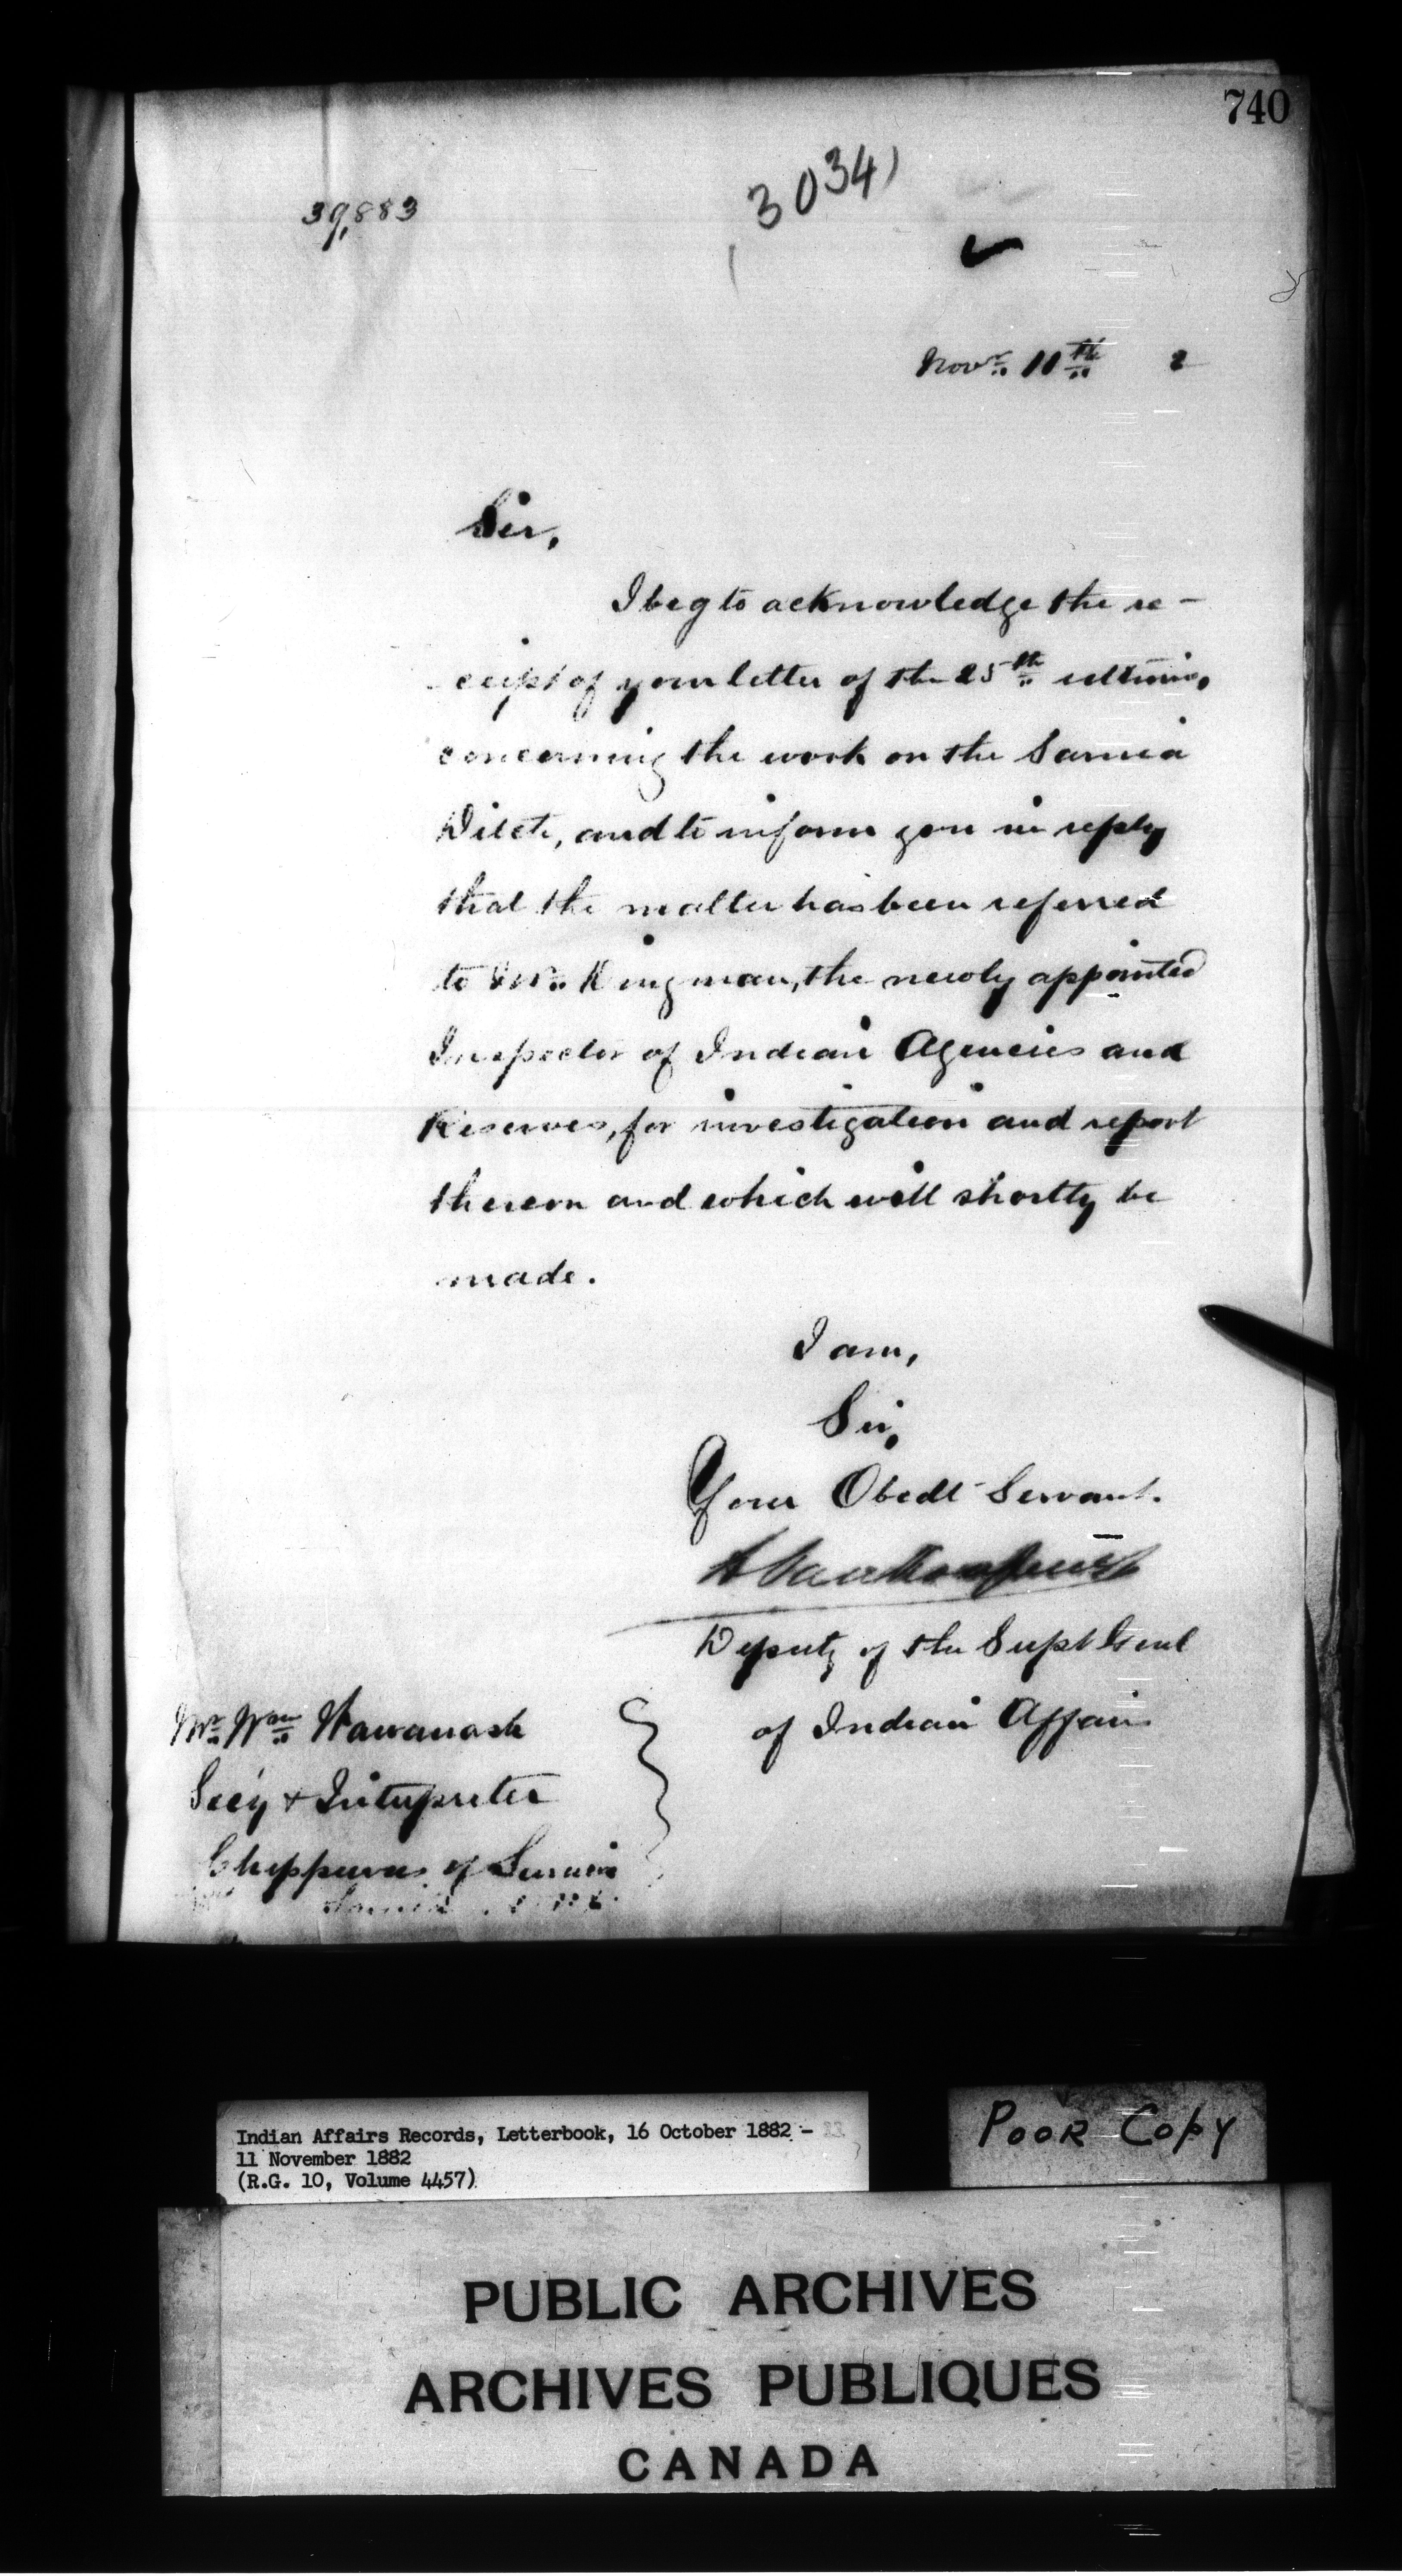 740
39,883
30341
Novr. 11th 2
Sir,
I beg to acknowledge the re-
-ceipt of your letter of the 25th ultimo,
concerning the work on the Sarnia
Ditch, and to inform you in reply
that the matter has been referred
to Mr. Dingman, the newly appointed
Inspector of Indian Agencies and
Reserves, for investigation and report
thereon and which will shortly be
made.
I am,
Sir,
Your Obedt Servant.
L Vankoughnet
Deputy of the Supt Genl
of Indian Affairs
Mr. Wm. Wawanosh
Secy & Interpreter
Chippewas of Sarnia
Sarnia
Indian Affairs Records, Letterbook, 16 October 1882 -
11 November 1882
(R.G. 10, Volume 4457)
POOR COPY
PUBLIC ARCHIVES
ARCHIVES PUBLIQUES
CANADA